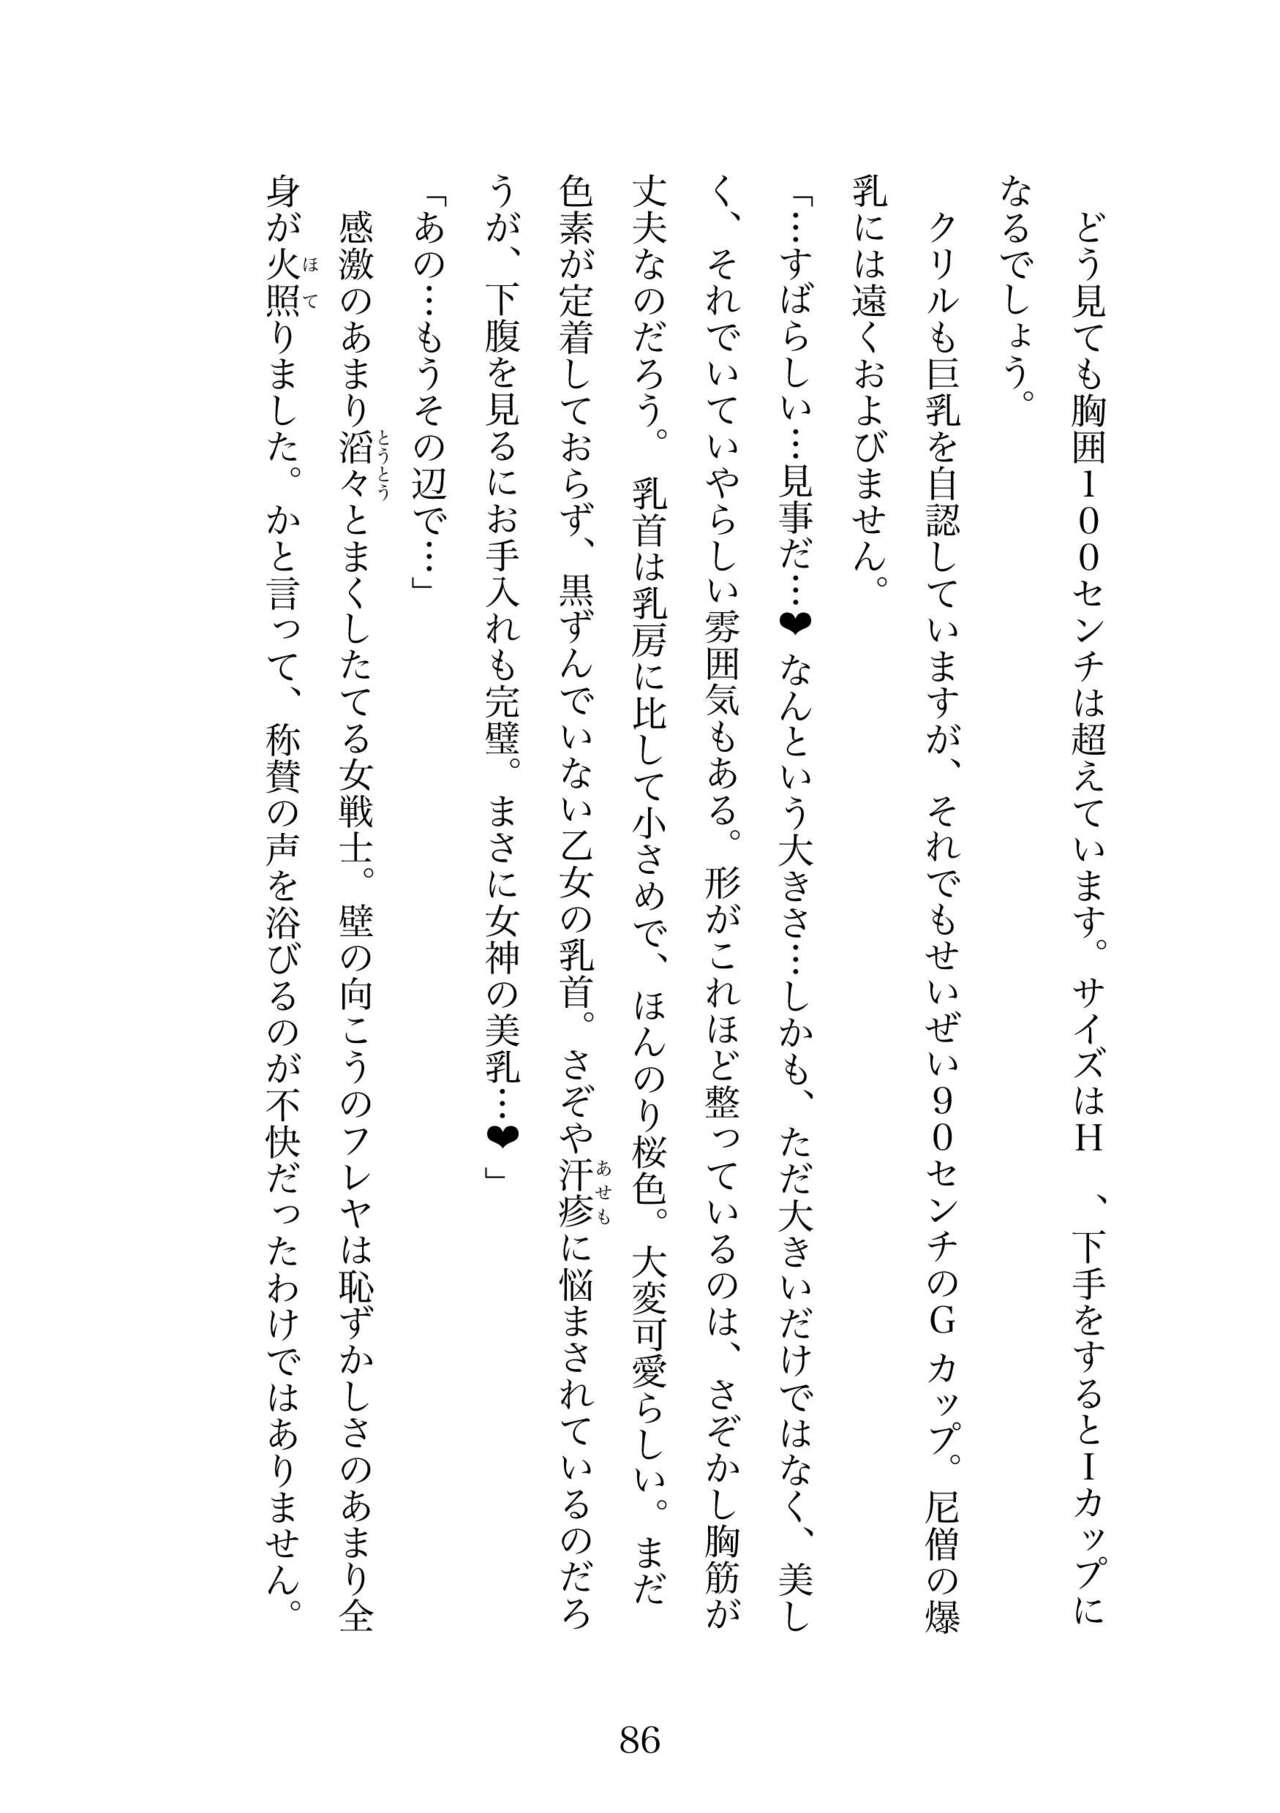 どう見ても胸囲100センチは超えています。サイズはH、下手をするとIカップに
なるでしょう。
クリルも巨乳を自認していますが、それでもせいぜい90センチのGカップ。尼僧の爆
乳には遠くおよびません。
「…すばらしい…見事だ…❤なんという大きさ…しかも、ただ大きいだけではなく、美し
く、それでいていやらしい雰囲気もある。形がこれほど整っているのは、さぞかし胸筋が
丈夫なのだろう。乳首は乳房に比して小さめで、ほんのり桜色。大変可愛らしい。まだ
色素が定着しておらず、黒ずんでいない乙女の乳首。さぞや汗疹に悩まされているのだろ
うが、下腹を見るにお手入れも完璧。まさに女神の美乳…❤」
「あの…もうその辺で…」
感激のあまり滔々とまくしたてる女戦士。壁の向こうのフレヤは恥ずかしさのあまり全
身が火照りました。かと言って、称賛の声を浴びるのが不快だったわけではありません。
86